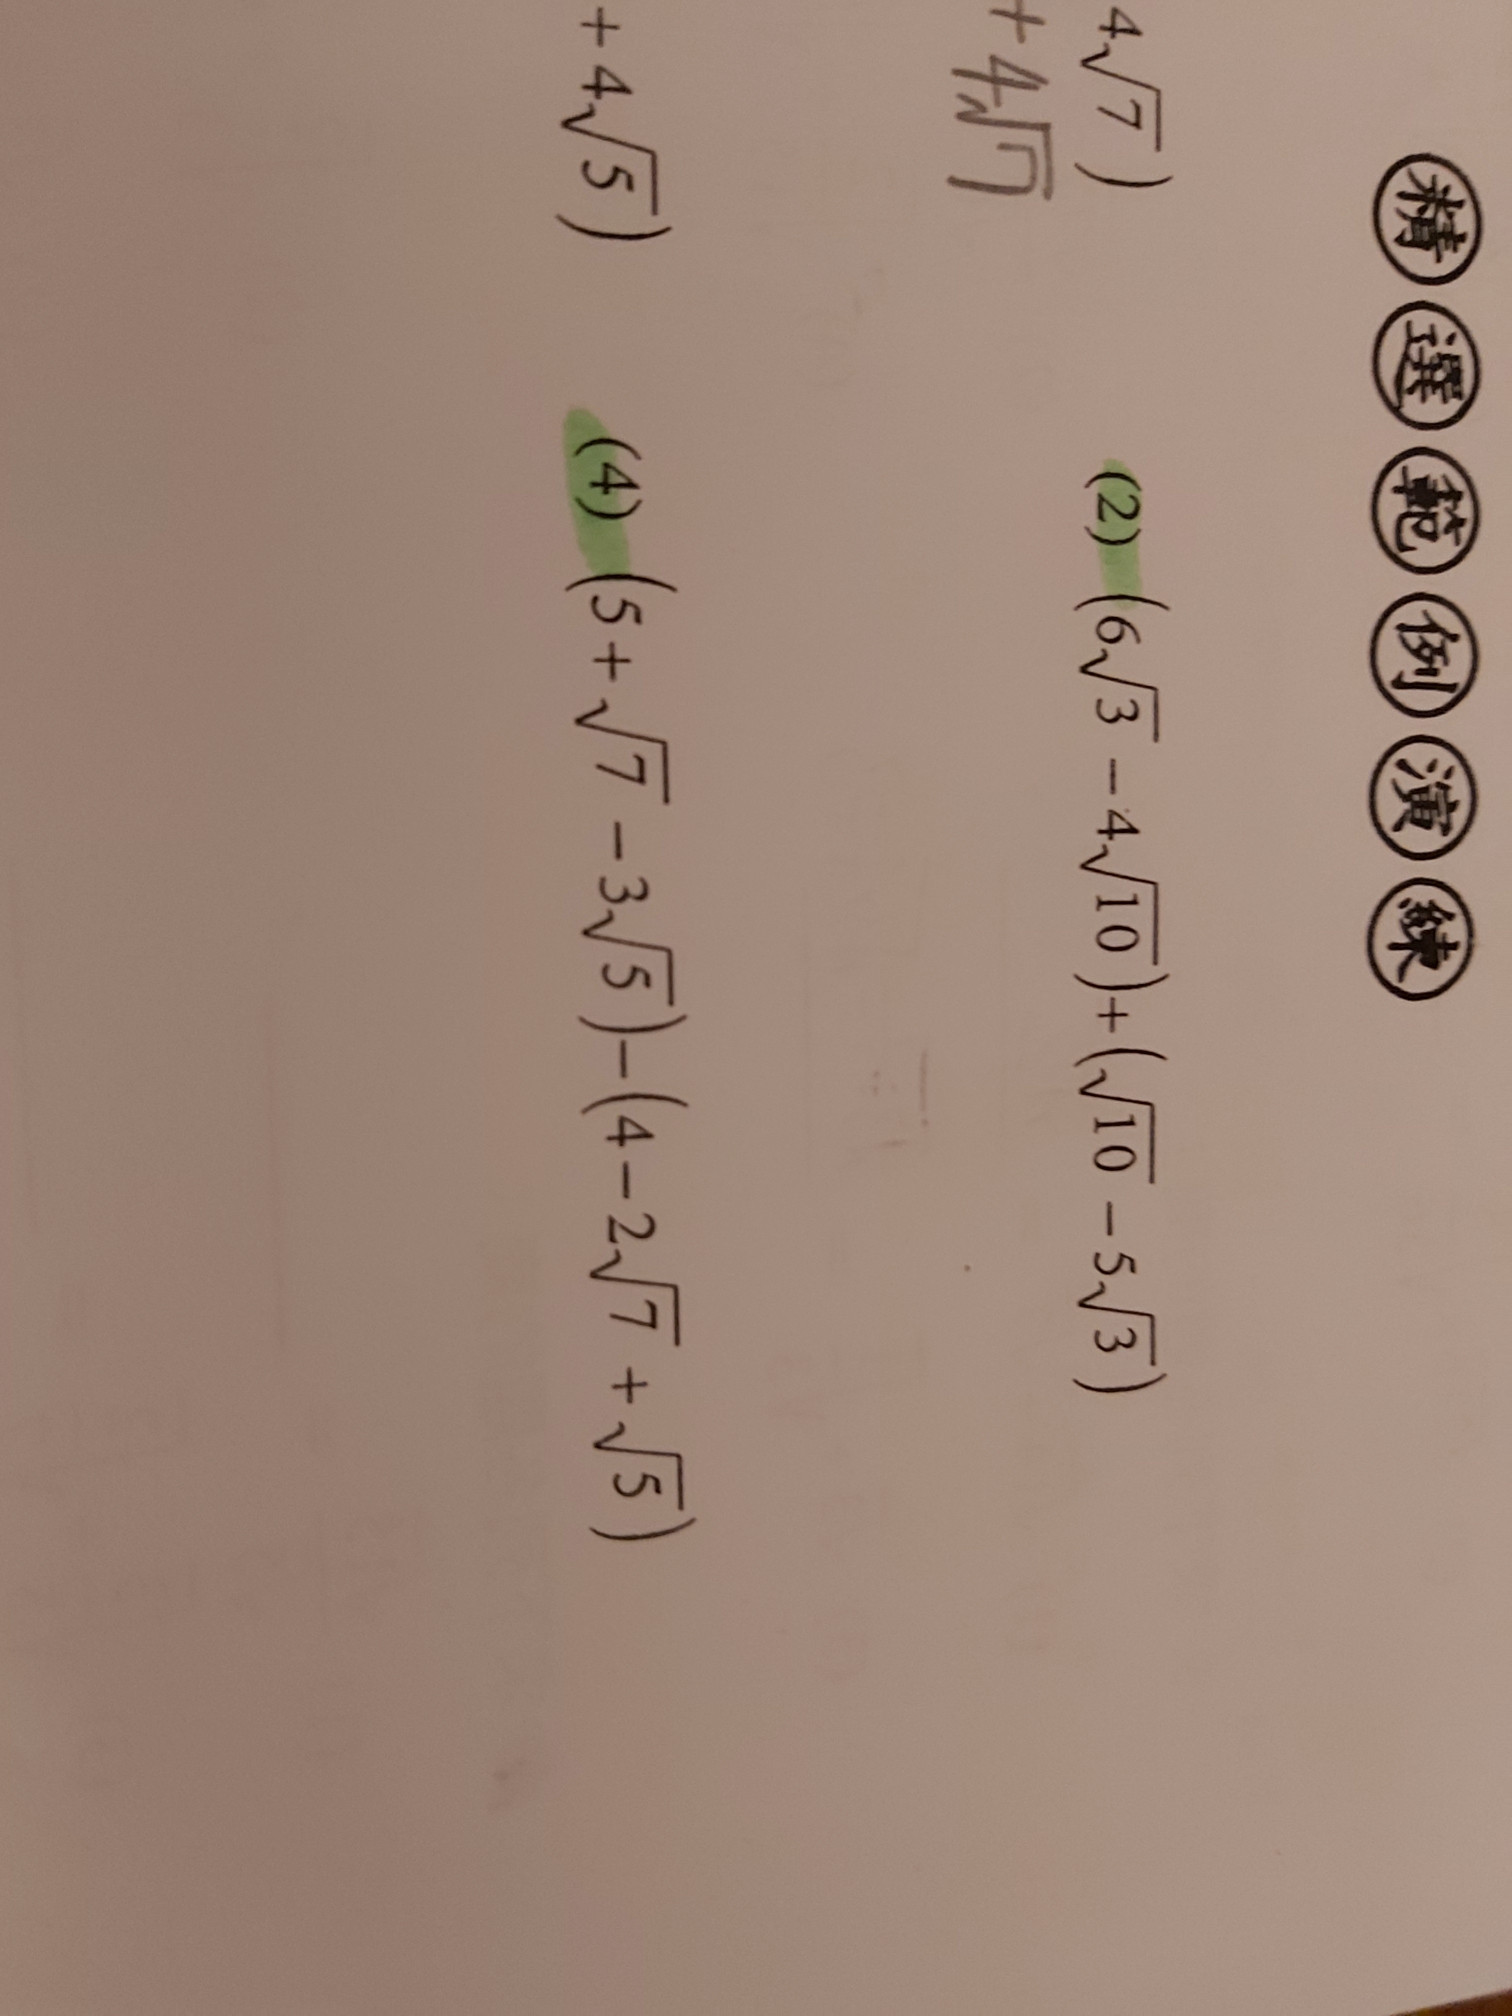 精選範例演練
4√7)
(2) (6√3 − 4√10) + (√10 − 5√3)
+ 4√7
+ 4√5)
(4) (5 + √7 − 3√5) − (4 − 2√7 + √5)